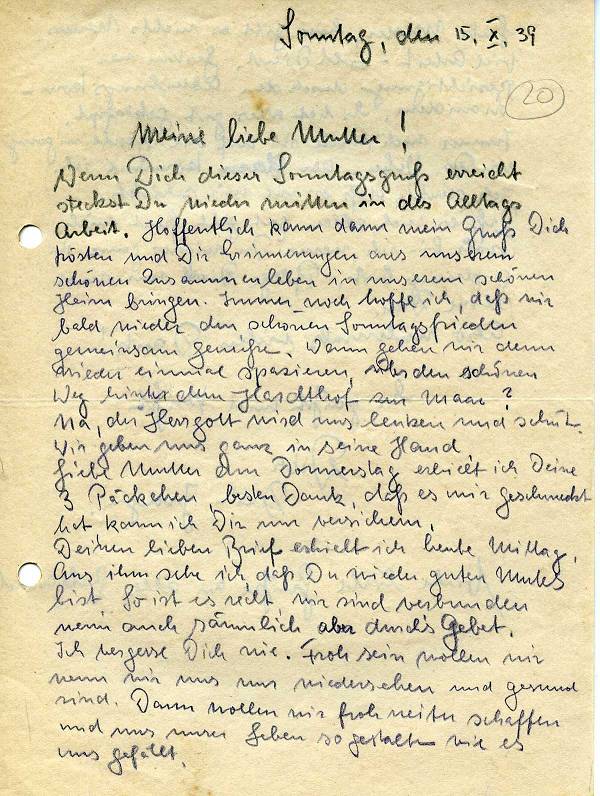 Sonntag, den 15. X. 39
20
Meine liebe Mutter!
Wenn Dich dieser Sonntagsgruß erreicht
steckst Du wieder mitten in des Alltags
Arbeit. Hoffentlich kann dann mein Gruß Dich
trösten und Dir Erinnerungen aus unserem
schönen Zusammenleben in unserem schönen
Heim bringen. Immer noch hoffe ich, daß wir
bald wieder den schönen Sonntagsfrieden
gemeinsam genießen. Wann gehen wir denn
wieder einmal spazieren, den schönen
Weg hinter dem Hardthof zur Maar?
Na, der Herrgott wird uns lenken und schütz.
Wir geben uns ganz in seine Hand
Liebe Mutter am Donnerstag erhielt ich Deine
3 Päckchen, besten Dank, daß es mir geschmeckt
hat kann ich Dir nur versichern.
Deinen lieben Brief erhielt ich heute Mittag,
Aus ihm sehe ich, daß Du wieder guten Mutes
bist. So ist es recht, wir sind verbunden
wenn auch räumlich aber durch's Gebet.
Ich vergesse Dich nie. Froh sein wollen wir
wenn wir uns nur wiedersehen und gesund
sind. Dann wollen wir froh weiter schaffen
und uns unser Leben so gestalten wie es
uns gefällt.